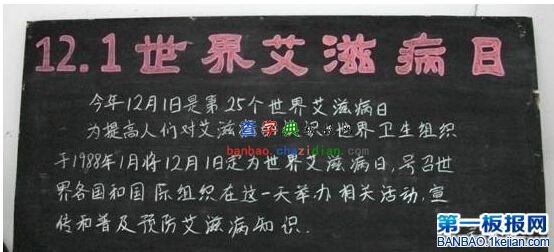 12.1世界艾滋病日
今年12月1日是第25个世界艾滋病日
为提高人们对艾滋 识,世界卫生组织
查字典
banbao.chazidian.com
于1988年1月将12月1日定为世界艾滋病日,号召世
界各国和国际组织在这一天举办相关活动,宣
传和普及预防艾滋病知识.
第一板报网
BANBAO.1kejian.com